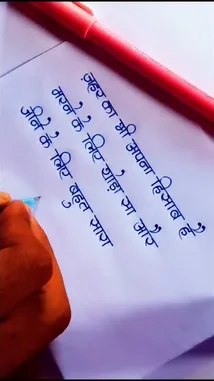 ज़हर का भी अपना हिसाब है
मरने के लिए थोड़ा सा और
जीने के लिए बहुत सारा